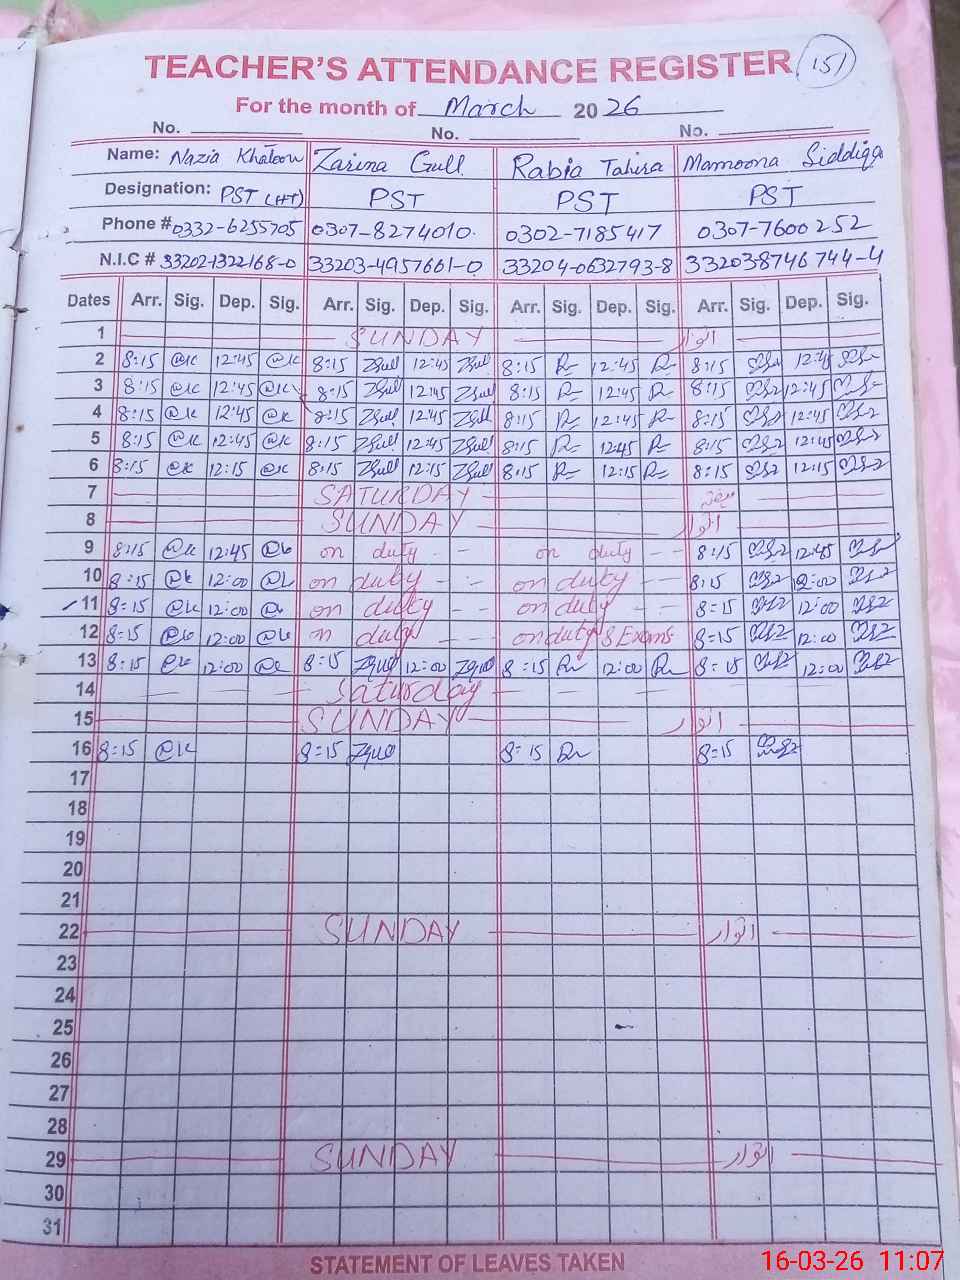 TEACHER'S ATTENDANCE REGISTER 151
For the month of March 2026
No. No. No.
Name: Nazia Khatoon Zarina Gull Rabia Tahira Mamoona Siddiqa
Designation: PST (HT) PST PST PST
Phone # 0332-6255705 0307-8274010 0302-7185417 0307-7600252
N.I.C # 33202-1322168-0 33203-4957661-0 33204-0632793-8 33203-8746744-4
Dates Arr. Sig. Dep. Sig. Arr. Sig. Dep. Sig. Arr. Sig. Dep. Sig. Arr. Sig. Dep. Sig.
1 SUNDAY اتوار
2 8:15 12:45 8:15 Zgull 12:45 Zgull 8:15 12:45 8:15 12:45
3 8:15 12:45 8:15 Zgull 12:45 Zgull 8:15 12:45 8:15 12:45
4 8:15 12:45 8:15 Zgull 12:45 Zgull 8:15 12:45 8:15 12:45
5 8:15 12:45 8:15 Zgull 12:45 Zgull 8:15 12:45 8:15 12:45
6 8:15 12:15 8:15 Zgull 12:15 Zgull 8:15 12:15 8:15 12:15
7 SATURDAY ہفتہ
8 SUNDAY اتوار
9 8:15 12:45 on duty on duty 8:15 12:45
10 8:15 12:00 on duty on duty 8:15 12:00
11 8:15 12:00 on duty on duty 8:15 12:00
12 8:15 12:00 on duty on duty 8 Exams 8:15 12:00
13 8:15 12:00 8:15 Zgull 12:00 Zgull 8:15 12:00 8:15 12:00
14 Saturday
15 SUNDAY اتوار
16 8:15 8:15 Zgull 8:15 8:15
17
18
19
20
21
22 SUNDAY اتوار
23
24
25
26
27
28
29 SUNDAY اتوار
30
31
STATEMENT OF LEAVES TAKEN
16-03-26 11:07